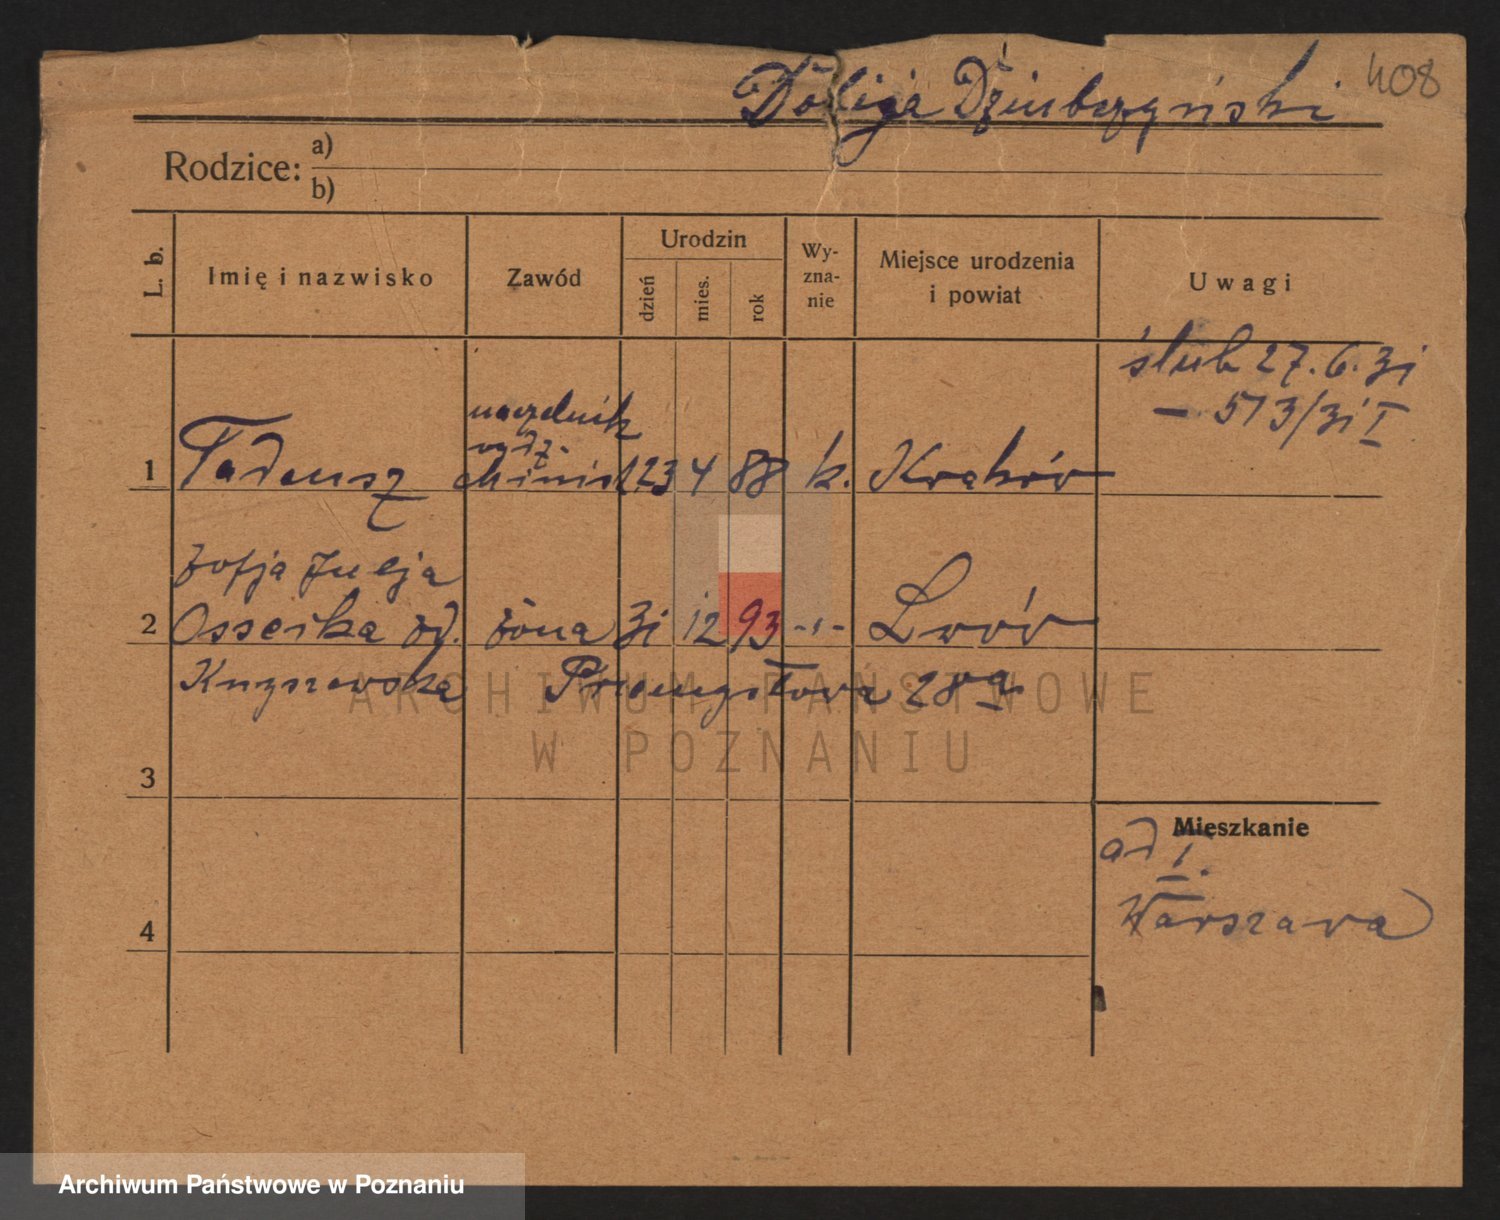 408
Dołęga Dziubczyński
Rodzice: a)
b)
L. b.
Imię i nazwisko
Zawód
Urodzin
dzień
mies.
rok
Wy-
zna-
nie
Miejsce urodzenia
i powiat
Uwagi
ślub 27.6.31
- 573/31 I
naczelnik
1 Tadeusz
minist. 23 4 88 k. Kraków
Zofja Julja
2 Osseika zd. żona 31 12 93 -"- Lwów
Knyszewska Przemysłowa 28a
3
4
Mieszkanie
ad 1.
Warszawa
ARCHIWUM PAŃSTWOWE
W POZNANIU
Archiwum Państwowe w Poznaniu